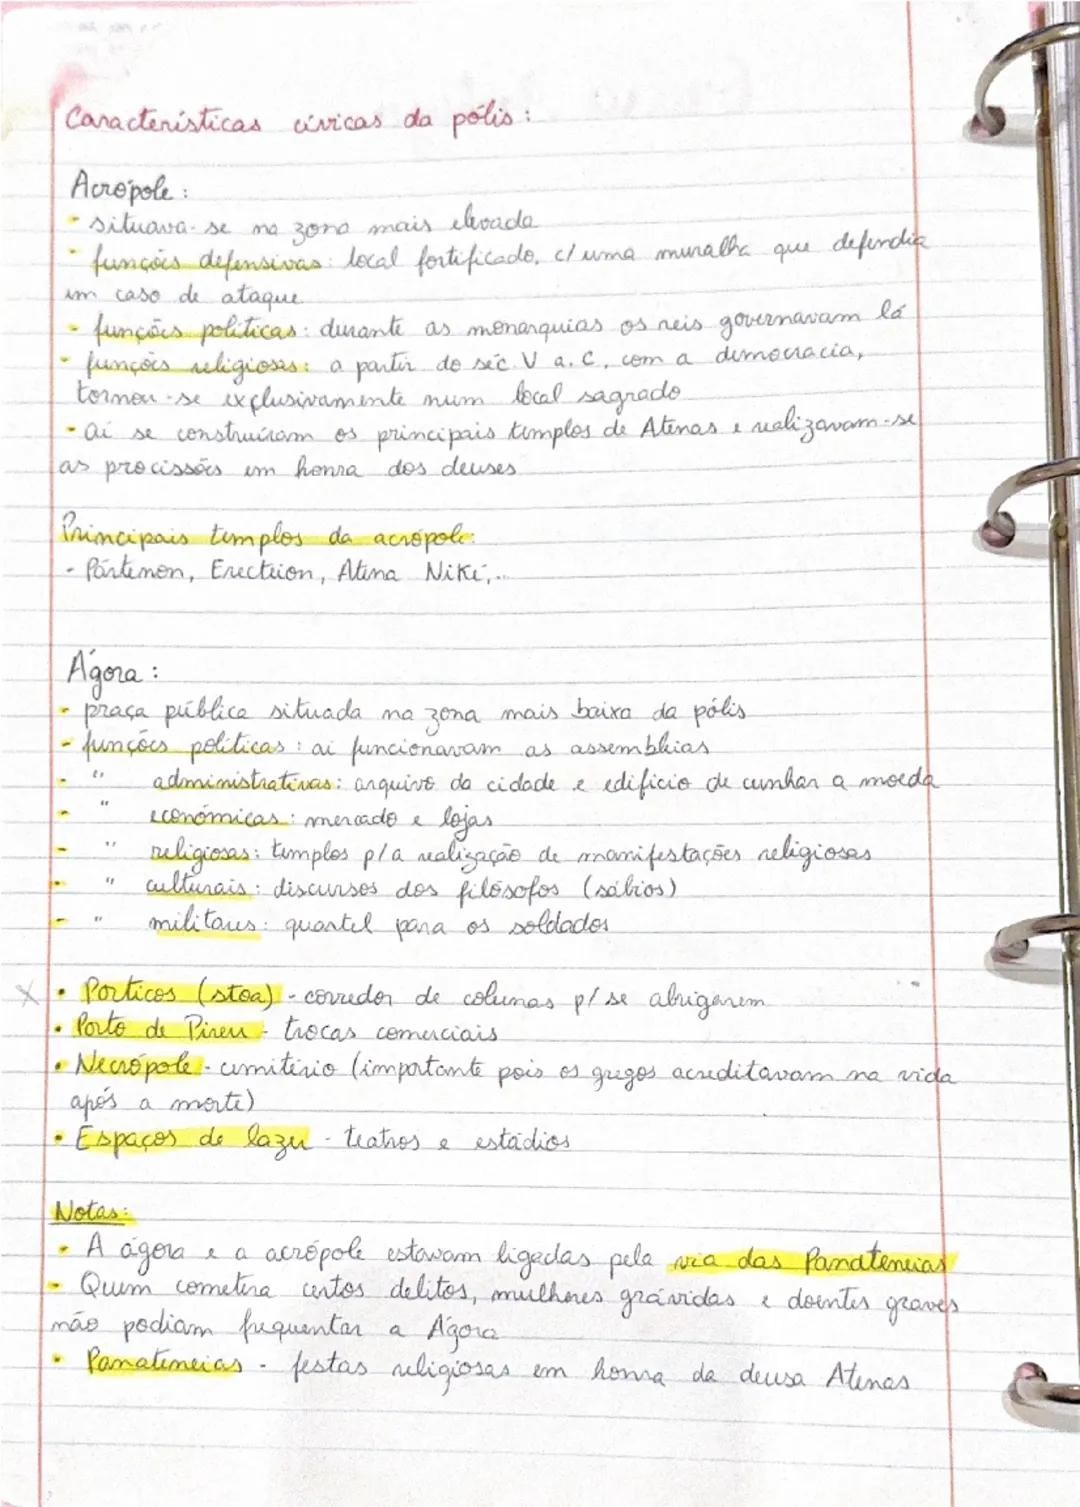 Características cívicas da pólis:
Acrópole:
- situava-se na zona mais elevada
- funções defensivas: local fortificado, c/ uma muralha que defendia
em caso de ataque
- funções políticas: durante as monarquias os reis governavam lá
- funções religiosas: a partir do séc. V a.C., com a democracia,
tornou-se exclusivamente num local sagrado
- aí se construíram os principais templos de Atenas e realizavam-se
as procissões em honra dos deuses
Principais templos da acrópole:
- Pártenon, Erecteion, Atena Niké,...
Ágora:
- praça pública situada na zona mais baixa da pólis
- funções políticas: aí funcionavam as assembleias
- " administrativas: arquivo da cidade e edifício de cunhar a moeda
- " económicas: mercado e lojas
- " religiosas: templos p/a realização de manifestações religiosas
- " culturais: discursos dos filósofos (sábios)
- " militares: quartel para os soldados
X • Porticos (stoa) - corredor de colunas p/ se abrigarem
• Porto de Pireu - trocas comerciais
• Necrópole - cemitério (importante pois os gregos acreditavam na vida
após a morte)
• Espaços de lazer - teatros e estádios
Notas:
- A ágora e a acrópole estavam ligadas pela via das Panateneias
- Quem cometera certos delitos, mulheres grávidas e doentes graves
não podiam frequentar a Ágora
- Panateneias - festas religiosas em honra da deusa Atenas